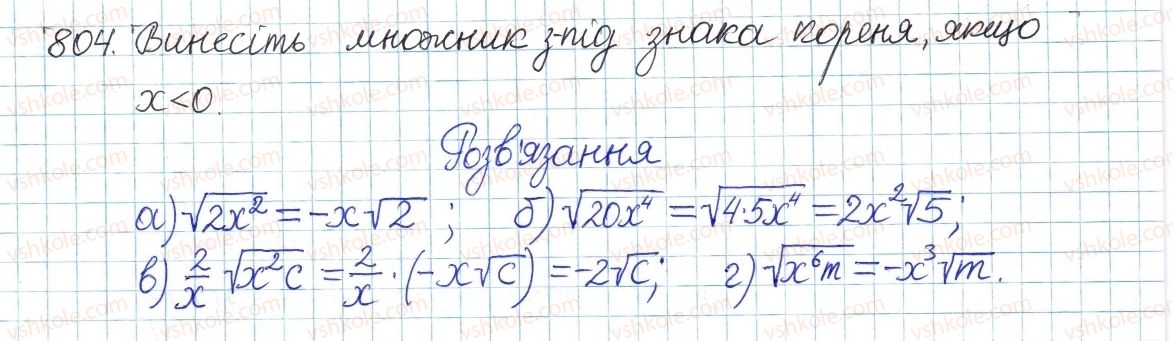 804. Винесіть множник з-під знака кореня, якщо
x<0.
Розв'язання
а) √(2x²) = -x√2 ; б) √(20x⁴) = √(4·5x⁴) = 2x²√5;
в) 2/x √(x²c) = 2/x · (-x√c) = -2√c; г) √(x⁶m) = -x³√m.